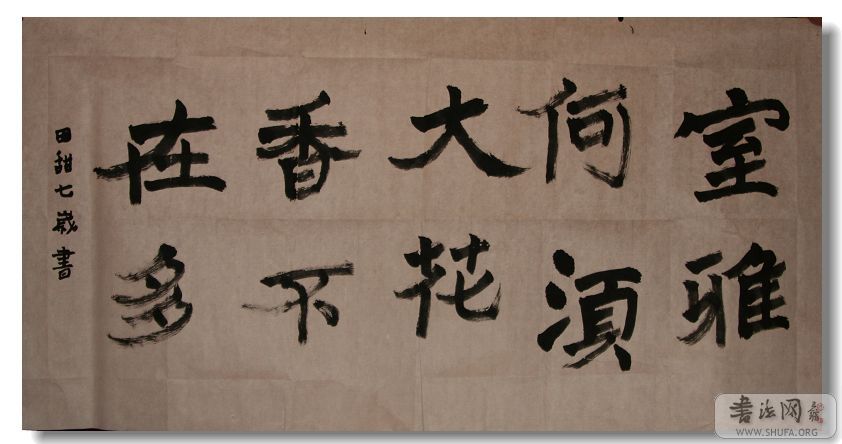 室雅
何須
大花
香不
在多
田甜七歲書
书法网
WWW.SHUFA.ORG